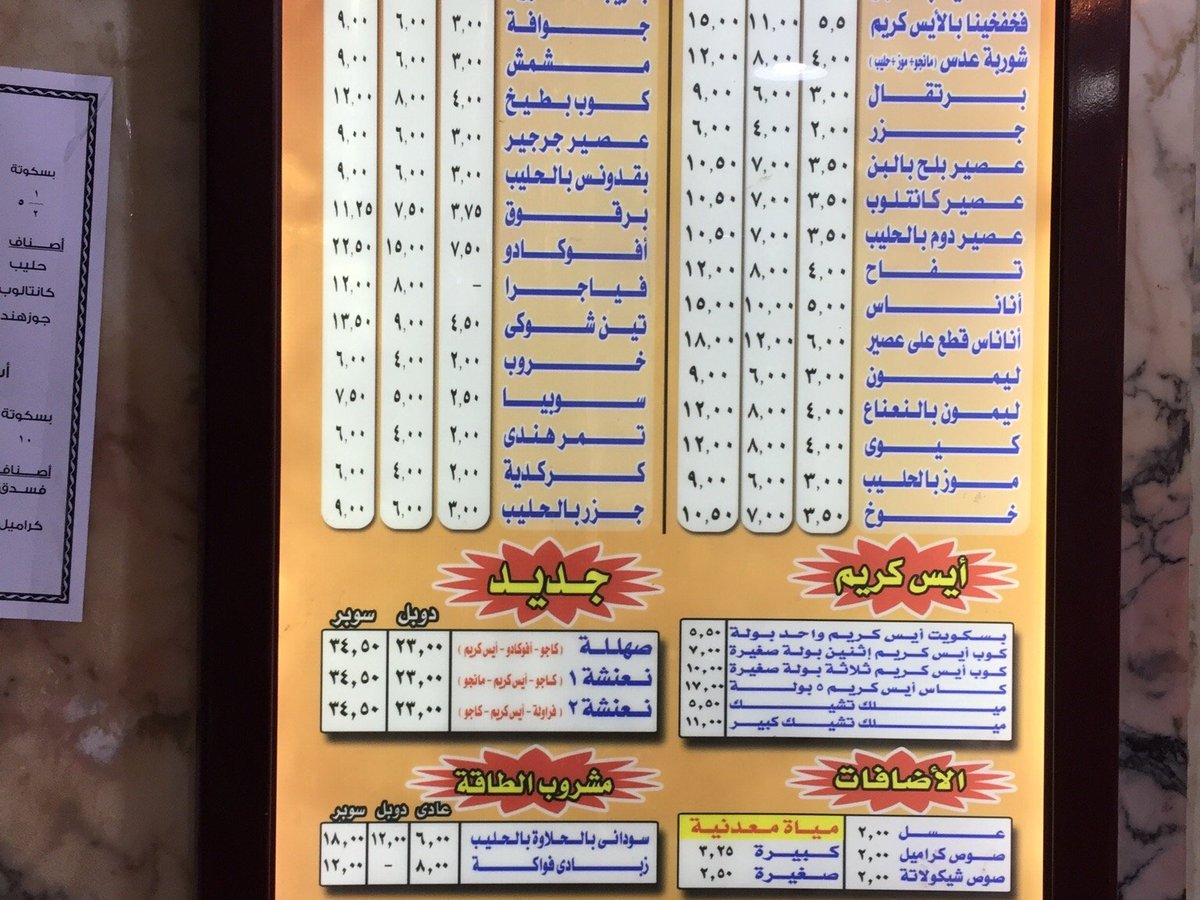 فخفخينا بالأيس كريم ٥,٥ ١١,٠٠ ١٥,٠٠
شوربة عدس (مانجو+ موز+حليب) ٤,٠٠ ٨,٠٠ ١٢,٠٠
برتقال ٣,٠٠ ٦,٠٠ ٩,٠٠
جزر ٢,٠٠ ٤,٠٠ ٦,٠٠
عصير بلح بالبن ٣,٥٠ ٧,٠٠ ١٠,٥٠
عصير كانتلوب ٣,٥٠ ٧,٠٠ ١٠,٥٠
عصير دوم بالحليب ٣,٥٠ ٧,٠٠ ١٠,٥٠
تفاح ٤,٠٠ ٨,٠٠ ١٢,٠٠
أناناس ٥,٠٠ ١٠,٠٠ ١٥,٠٠
أناناس قطع على عصير ٦,٠٠ ١٢,٠٠ ١٨,٠٠
ليمون ٣,٠٠ ٦,٠٠ ٩,٠٠
ليمون بالنعناع ٤,٠٠ ٨,٠٠ ١٢,٠٠
كيوى ٤,٠٠ ٨,٠٠ ١٢,٠٠
موز بالحليب ٣,٠٠ ٦,٠٠ ٩,٠٠
خوخ ٣,٥٠ ٧,٠٠ ١٠,٥٠
جوافة ٣,٠٠ ٦,٠٠ ٩,٠٠
مشمش ٣,٠٠ ٦,٠٠ ٩,٠٠
كوب بطيخ ٤,٠٠ ٨,٠٠ ١٢,٠٠
عصير جرجير ٣,٠٠ ٦,٠٠ ٩,٠٠
بقدونس بالحليب ٣,٠٠ ٦,٠٠ ٩,٠٠
برقوق ٣,٧٥ ٧,٥٠ ١١,٢٥
أفوكادو ٧,٥٠ ١٥,٠٠ ٢٢,٥٠
فياجرا - ٨,٠٠ ١٢,٠٠
تين شوكى ٤,٥٠ ٩,٠٠ ١٣,٥٠
خروب ٢,٠٠ ٤,٠٠ ٦,٠٠
سوبيا ٢,٥٠ ٥,٠٠ ٧,٥٠
تمر هندى ٢,٠٠ ٤,٠٠ ٦,٠٠
كركدية ٢,٠٠ ٤,٠٠ ٦,٠٠
جزر بالحليب ٣,٠٠ ٦,٠٠ ٩,٠٠
أيس كريم
بسكويت أيس كريم واحد بولة ٥,٥٠
كوب أيس كريم إثنين بولة صغيرة ٧,٠٠
كوب أيس كريم ثلاثة بولة صغيرة ١٠,٠٠
كاس أيس كريم ٥ بولة ١٧,٠٠
ميلك تشيك ٥,٥٠
ميلك تشيك كبير ١١,٠٠
جديد
دوبل سوبر
صهللة (كاجو - أفوكادو - أيس كريم) ٢٣,٠٠ ٣٤,٥٠
نعنشة ١ (كاجو - أيس كريم - مانجو) ٢٣,٠٠ ٣٤,٥٠
نعنشة ٢ (فراولة - أيس كريم - كاجو) ٢٣,٠٠ ٣٤,٥٠
الأضافات
عسل ٢,٠٠
صوص كراميل ٢,٠٠
صوص شيكولاتة ٢,٠٠
مياة معدنية
كبيرة ٣,٢٥
صغيرة ٢,٥٠
مشروب الطاقة
عادى دوبل سوبر
سودانى بالحلاوة بالحليب ٦,٠٠ ١٢,٠٠ ١٨,٠٠
زبادى فواكة ٨,٠٠ - ١٢,٠٠
بسكوتة
١/٢ ٥
أصناف
حليب
كانتالوب
جوزهند
بسكوتة
١٠
أصناف
فسدق
كراميل